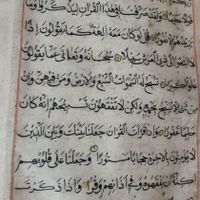 قولا عظيما ولقد صرفنا في هذا القران ليذكروا وما
يزيدهم الا نفورا قل لو كان معه الهة كما يقولون اذا
لابتغوا الى ذي العرش سبيلا سبحانه وتعالى عما يقولون
علوا كبيرا تسبح له السموات السبع والارض ومن فيهن وان
من شيء الا يسبح بحمده ولكن لا تفقهون تسبيحهم انه كان
حليما غفورا واذا قرات القران جعلنا بينك وبين الذين
لا يؤمنون بالاخرة حجابا مستورا وجعلنا على قلوبهم
اكنة ان يفقهوه وفي اذانهم وقرا واذا ذكرت